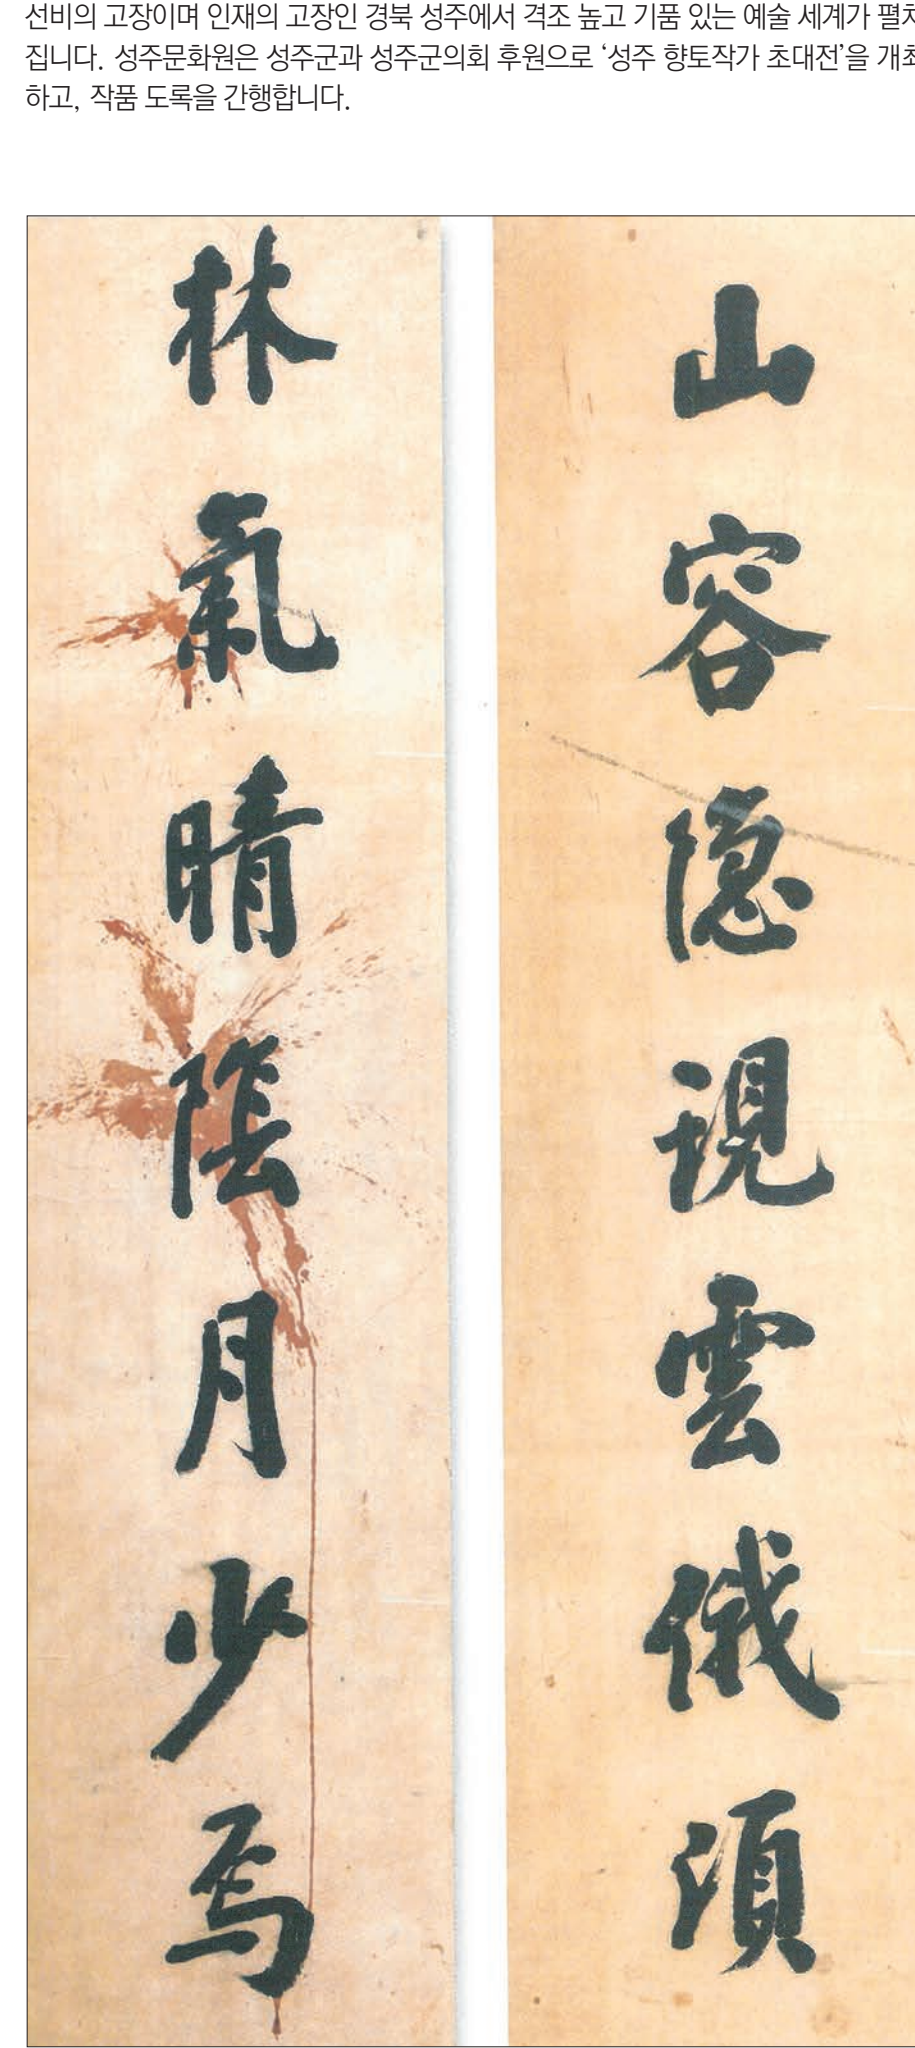 선비의 고장이며 인재의 고장인 경북 성주에서 격조 높고 기품 있는 예술 세계가 펼쳐
집니다. 성주문화원은 성주군과 성주군의회 후원으로 ‘성주 향토작가 초대전’을 개최
하고, 작품 도록을 간행합니다.
山容隱現雲俄須
林氣晴陰月少焉